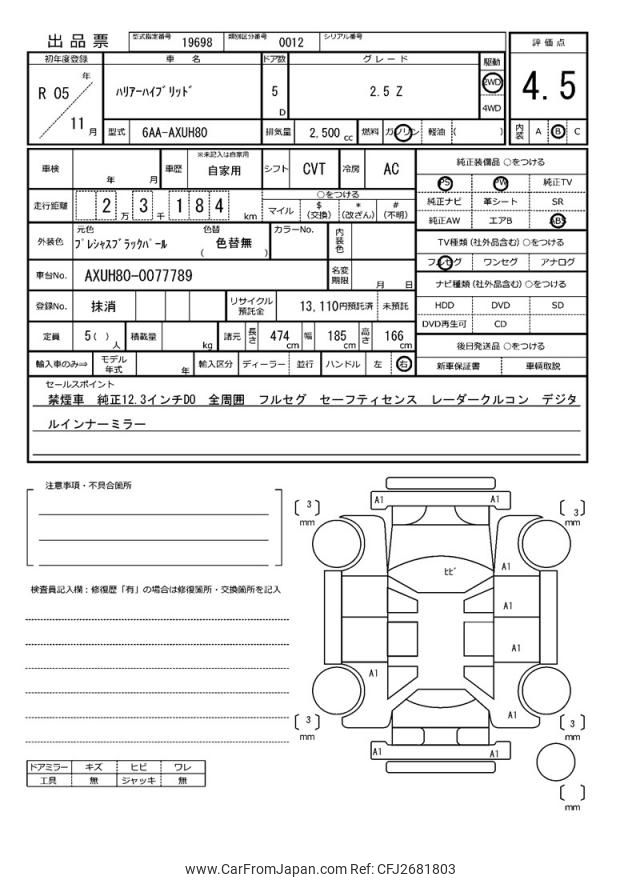 出品票 型式指定番号 19698 類別区分番号 0012 シリアル番号
評価点
4.5
内装 A B C
初年度登録 車名 ドア数 グレード 駆動
R 05 年 11 月
ハリアーハイブリッド 5 D 2.5 Z 2WD 4WD
型式 6AA-AXUH80 排気量 2,500 cc 燃料 ガソリン 軽油 ( )
車検 年 月 車歴 ※未記入は自家用 自家用 シフト CVT 冷房 AC
走行距離 2 万 3 千 1 8 4 km
○をつける
マイル $(交換) *(改ざん) #(不明)
外装色 元色 プレシャスブラックパール 色替 色替無 ( ) カラーNo. 内装色
車台No. AXUH80-0077789 名変期限 月 日
登録No. 抹消 リサイクル預託金 13,110円預託済 未預託
定員 5( )人 積載量 kg 諸元 長さ 474 cm 幅 185 cm 高さ 166 cm
輸入車のみ⇒ モデル年式 年 輸入区分 ディーラー 並行 ハンドル 左 右
純正装備品 ○をつける
PS PW 純正TV
純正ナビ 革シート SR
純正AW エアB ABS
TV種類(社外品含む) ○をつける
フルセグ ワンセグ アナログ
ナビ種類(社外品含む) ○をつける
HDD DVD SD
DVD再生可 CD
後日発送品 ○をつける
新車保証書 車輌取説
セールスポイント
禁煙車 純正12.3インチDO 全周囲 フルセグ セーフティセンス レーダークルコン デジタ
ルインナーミラー
注意事項・不具合箇所
検査員記入欄：修復歴「有」の場合は修復箇所・交換箇所を記入
ドアミラー キズ ヒビ ワレ
工具 無 ジャッキ 無
3 mm
A1 A1
3 mm
ヒビ
A1
A1
A1
A1
A1
3 mm
A1 A1
3 mm
mm
www.CarFromJapan.com Ref: CFJ2681803